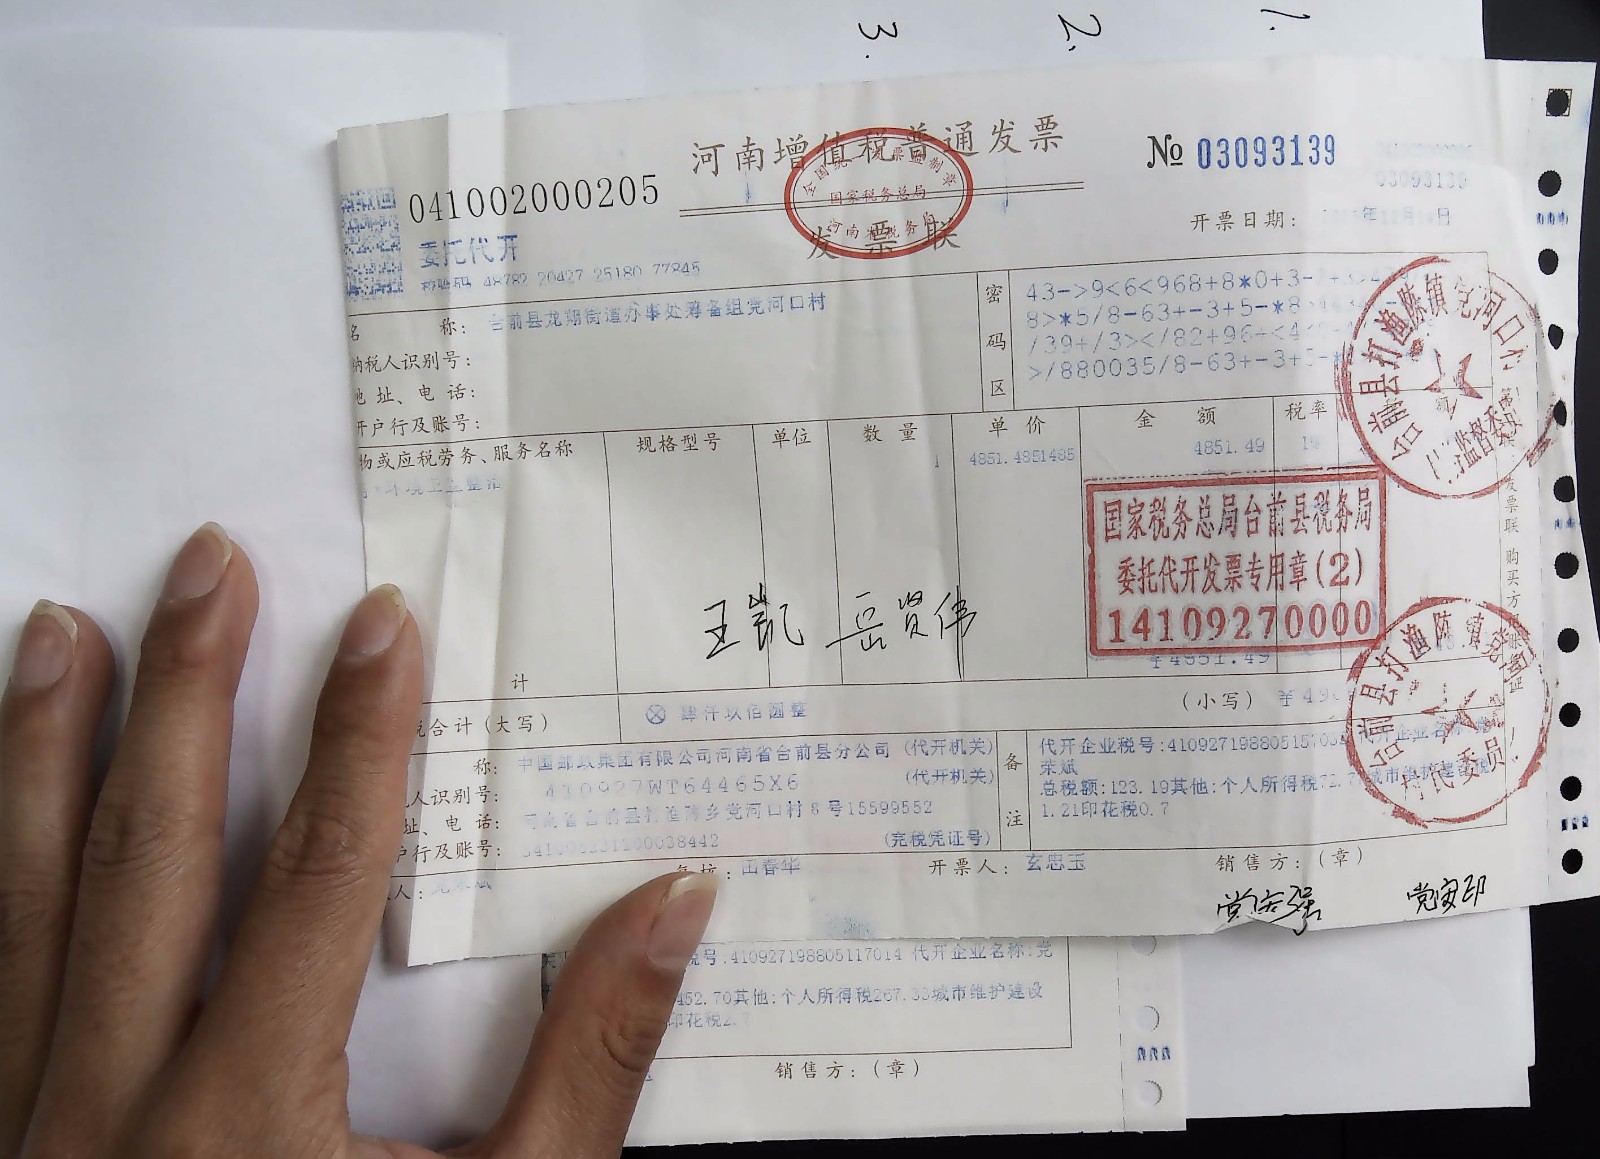 1.
2.
3.
河南增值税普通发票
№ 03093139
041002000205
03093139
全国统一发票监制章
国家税务总局
河南省税务局
发票联
开票日期:
委托代开
校验码 48782 20427 25180 77845
称: 台前县龙翔街道办事处筹备组党河口村
纳税人识别号:
地址、电话:
开户行及账号:
密码区
43->9<6<968+8*0+3-
8>*5/8-63+-+3+5-*8
/39+/3></82+96+<4
>/880035/8-63+-+3+
物或应税劳务、服务名称
规格型号
单位
数量
单价
金额
税率
额
环境卫生整治
1
4851.4851485
4851.49
1%
国家税务总局台前县税务局
委托代开发票专用章(2)
14109270000
王凯 岳贤伟
计
¥4851.49
税合计(大写)
⊗ 肆仟玖佰圆整
(小写)
称: 中国邮政集团有限公司河南省台前县分公司 (代开机关)
人识别号: 410927WT64465X6 (代开机关)
址、电话: 河南省台前县打渔陈乡党河口村8号15599552
户行及账号: (完税凭证号)
备注
代开企业税号:41092719880515703 代开企业名称:党
荣斌
总税额:123.19其他:个人所得税72.7 城市维护建设税
1.21印花税0.7
人:
复核: 田春华
开票人: 玄忠玉
销售方:(章)
台前县打渔陈镇党河口村
监督委
台前县打渔陈镇党河口
村代委员
发票联 购买方记账凭证
党宏强
党寅印
税号:410927198805117014 代开企业名称:党
452.70其他:个人所得税267.33城市维护建设
印花税2.
销售方:(章)